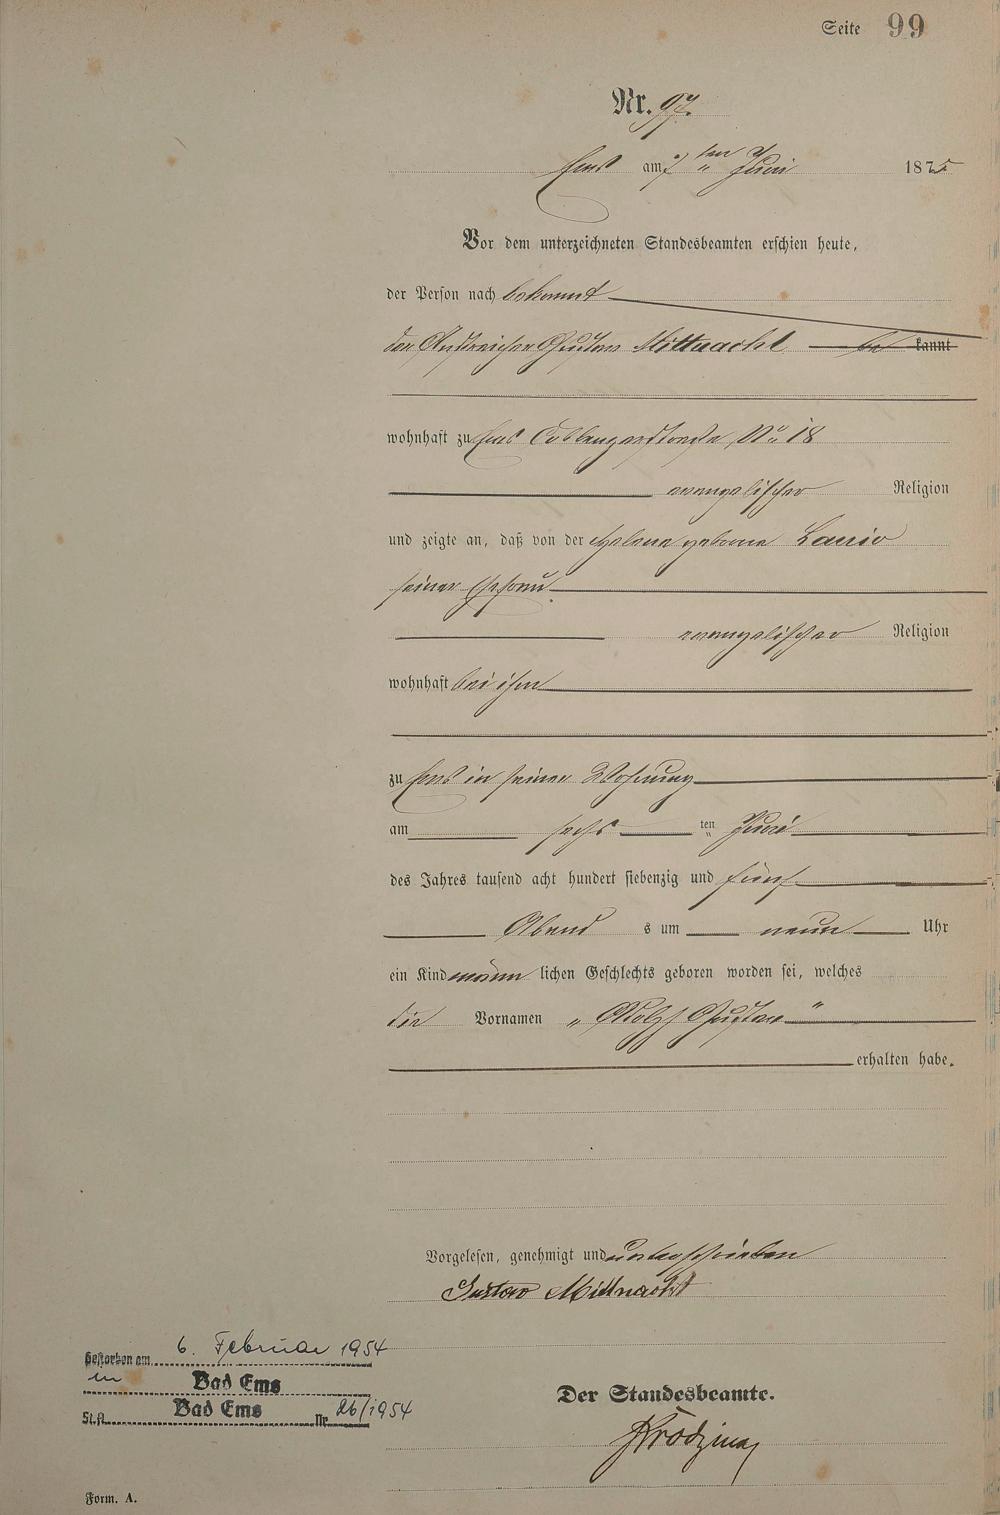 Seite 99
Nr. 97.
Ems am 7 ten Juni 1875
Vor dem unterzeichneten Standesbeamten erschien heute,
der Person nach bekannt
der Anstreicher Gustav Mittnacht be kannt
wohnhaft zu Ems Coblenzerstraße No 18
evangelischer Religion
und zeigte an, daß von der Helene geborne
seiner Ehefrau
evangelischer Religion
wohnhaft bei ihm
zu Ems in seiner Wohnung
am sechs ten Juni
des Jahres tausend acht hundert siebenzig und fünf
Abend s um neun Uhr
ein Kind männ lichen Geschlechts geboren worden sei, welches
die Vornamen „ Adolf Gustav "
erhalten habe.
Vorgelesen, genehmigt und unterschrieben
Gustav Mittnacht
Gestorben am 6. Februar 1954
in Bad Ems
St.A. Bad Ems Nr. 26/1954
Der Standesbeamte.
Form. A.